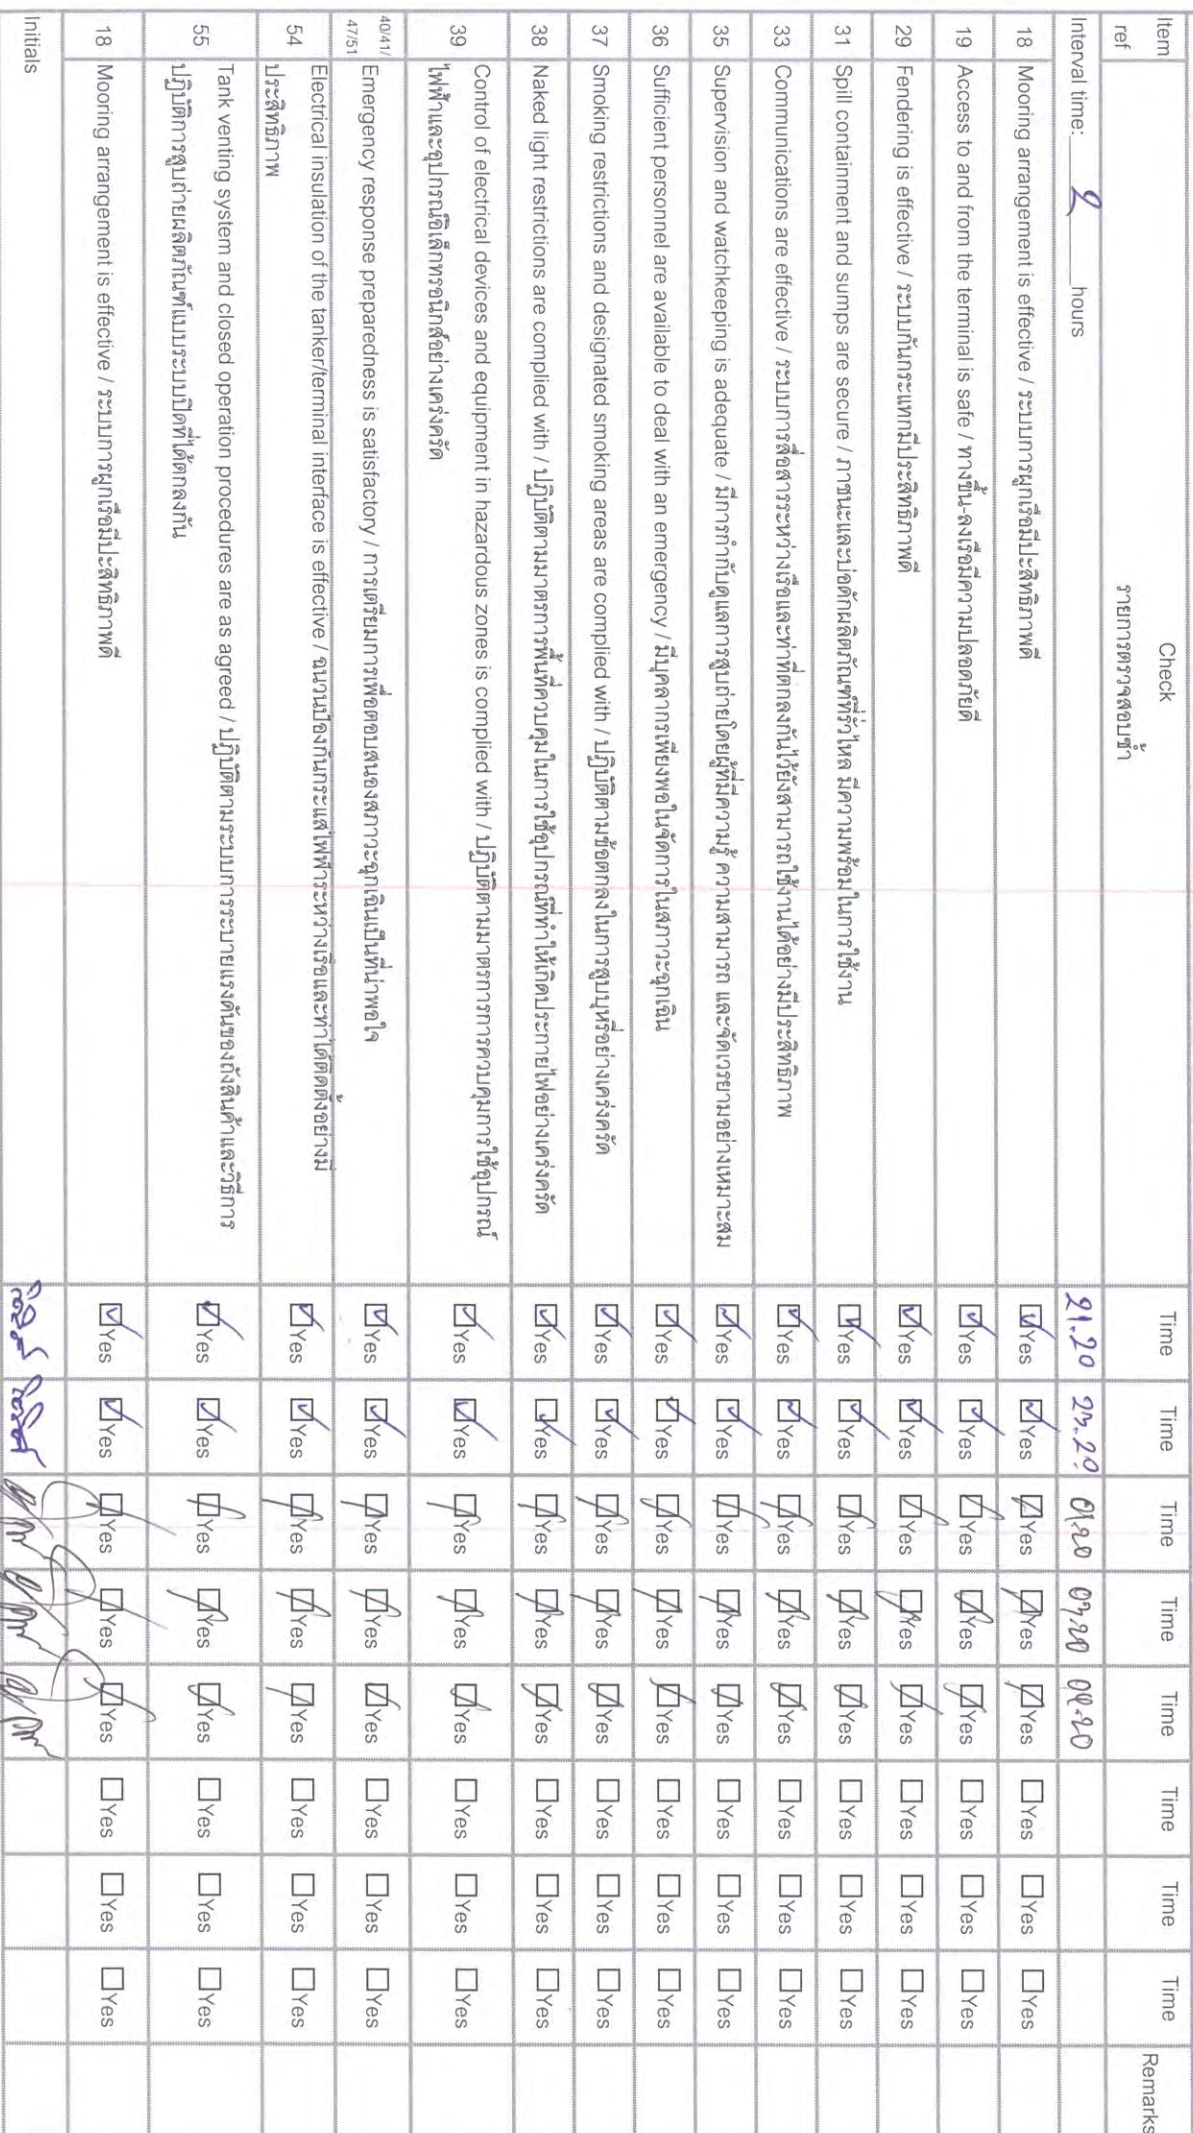 Item ref Check รายการตรวจสอบซ้ำ Time Time Time Time Time Time Time Time Remarks
Interval time: 2 hours 21.20 23.20 01.20 03.20
18 Mooring arrangement is effective / ระบบการผูกเรือมีปะสิทธิภาพดี ☑Yes ☑Yes ☑Yes ☑Yes ☑Yes ☐Yes ☐Yes ☐Yes
19 Access to and from the terminal is safe / ทางขึ้น-ลงเรือมีความปลอดภัยดี ☑Yes ☑Yes ☑Yes ☑Yes ☑Yes ☐Yes ☐Yes ☐Yes
29 Fendering is effective / ระบบกันกระแทกมีประสิทธิภาพดี ☑Yes ☑Yes ☑Yes ☑Yes ☑Yes ☐Yes ☐Yes ☐Yes
31 Spill containment and sumps are secure / ภาชนะและบ่อดักผลิตภัณฑ์ที่รั่วไหล มีความพร้อมในการใช้งาน ☑Yes ☑Yes ☑Yes ☑Yes ☑Yes ☐Yes ☐Yes ☐Yes
33 Communications are effective / ระบบการสื่อสารระหว่างเรือและท่าที่ตกลงกันไว้ยังสามารถใช้งานได้อย่างมีประสิทธิภาพ ☑Yes ☑Yes ☑Yes ☑Yes ☑Yes ☐Yes ☐Yes ☐Yes
35 Supervision and watchkeeping is adequate / มีการกำกับดูแลการสูบถ่ายโดยผู้ที่มีความรู้ ความสามารถ และจัดเวรยามอย่างเหมาะสม ☑Yes ☑Yes ☑Yes ☑Yes ☑Yes ☐Yes ☐Yes ☐Yes
36 Sufficient personnel are available to deal with an emergency / มีบุคลากรเพียงพอในจัดการในสภาวะฉุกเฉิน ☑Yes ☑Yes ☑Yes ☑Yes ☑Yes ☐Yes ☐Yes ☐Yes
37 Smoking restrictions and designated smoking areas are complied with / ปฏิบัติตามข้อตกลงในการสูบบุหรี่อย่างเคร่งครัด ☑Yes ☑Yes ☑Yes ☑Yes ☑Yes ☐Yes ☐Yes ☐Yes
38 Naked light restrictions are complied with / ปฏิบัติตามมาตรการพื้นที่ควบคุมในการใช้อุปกรณ์ที่ทำให้เกิดประกายไฟอย่างเคร่งครัด ☑Yes ☑Yes ☑Yes ☑Yes ☑Yes ☐Yes ☐Yes ☐Yes
39 Control of electrical devices and equipment in hazardous zones is complied with / ปฏิบัติตามมาตรการการควบคุมการใช้อุปกรณ์
ไฟฟ้าและอุปกรณ์อิเล็กทรอนิกส์อย่างเคร่งครัด ☑Yes ☑Yes ☑Yes ☑Yes ☑Yes ☐Yes ☐Yes ☐Yes
40/41/
47/51 Emergency response preparedness is satisfactory / การเตรียมการเพื่อตอบสนองสภาวะฉุกเฉินเป็นที่น่าพอใจ ☑Yes ☑Yes ☑Yes ☑Yes ☑Yes ☐Yes ☐Yes ☐Yes
54 Electrical insulation of the tanker/terminal interface is effective / ฉนวนป้องกันกระแสไฟฟ้าระหว่างเรือและท่าได้ติดตั้งอย่างมี
ประสิทธิภาพ ☑Yes ☑Yes ☑Yes ☑Yes ☑Yes ☐Yes ☐Yes ☐Yes
55 Tank venting system and closed operation procedures are as agreed / ปฏิบัติตามระบบการระบายแรงดันของถังสินค้าและวิธีการ
ปฏิบัติการสูบถ่ายผลิตภัณฑ์แบบระบบปิดที่ได้ตกลงกัน ☑Yes ☑Yes ☑Yes ☑Yes ☑Yes ☐Yes ☐Yes ☐Yes
18 Mooring arrangement is effective / ระบบการผูกเรือมีปะสิทธิภาพดี ☑Yes ☑Yes ☑Yes ☑Yes ☑Yes ☐Yes ☐Yes ☐Yes
Initials